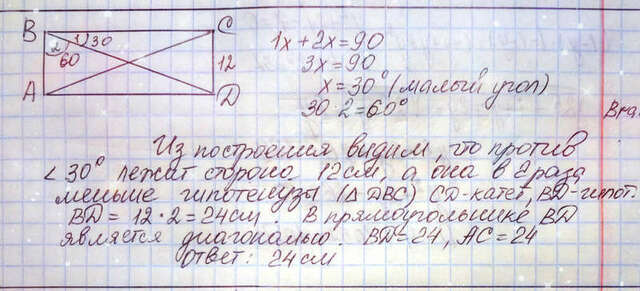 B C
2 1 30
60
12
A D
1x + 2x = 90
3x = 90
x = 30° (малый угол)
30 · 2 = 60°
Из построения видим, что против
∠ 30° лежит сторона 12 см, а она в 2 раза
меньше гипотенузы (Δ DBC) CD-катет, BD-гипот.
BD = 12 · 2 = 24 см В прямоугольнике BD
является диагональю. BD = 24, AC = 24
ответ: 24 см